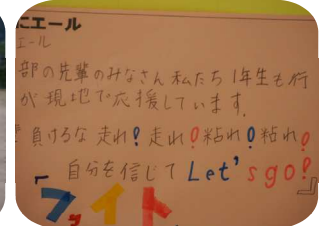 にエール
エール
部の先輩のみなさん私たち1年生も行
が現地で応援しています。
負けるな走れ!走れ!粘れ!粘れ!
自分を信じてLet's go!!
「ファイト